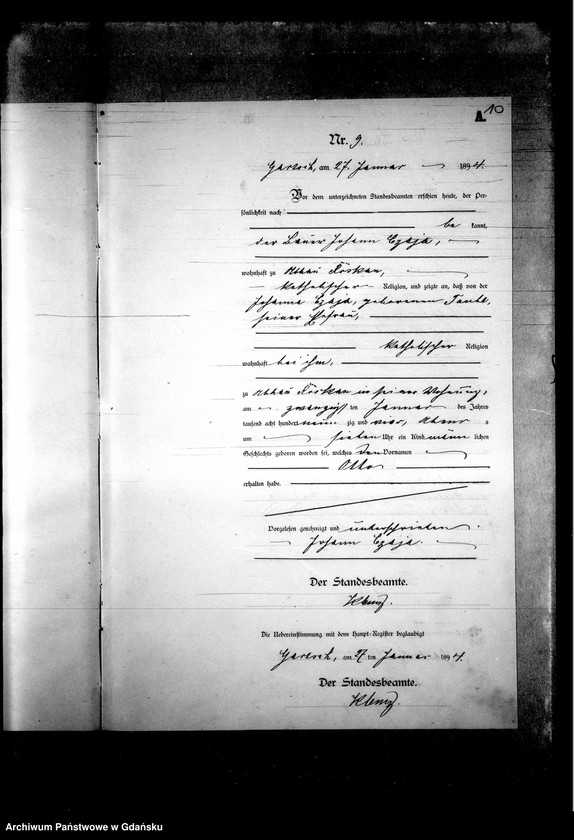 A. 10
Nr. 9.
am 27. Januar 1894.
Vor dem unterzeichneten Standesbeamten erschien heute, der Per-
sönlichkeit nach
be kannt,
der Bauer Johann Czaja,
wohnhaft zu Abbau
katholischer Religion, und zeigte an, daß von der
Johanna Czaja, geborenen
seiner Ehefrau,
katholischer Religion
wohnhaft bei ihm,
zu Abbau in seiner Wohnung,
am zwanzigsten Januar des Jahres
tausend acht hundert neun zig und vier, Abends
um sieben Uhr ein Kind männ lichen
Geschlechts geboren worden sei, welches den Vornamen
Otto
erhalten habe.
Vorgelesen, genehmigt und unterschrieben.
Johann Czaja.
Der Standesbeamte.
Die Uebereinstimmung mit dem Haupt-Register beglaubigt
am 27 ten Januar 1894.
Der Standesbeamte.
Archiwum Państwowe w Gdańsku